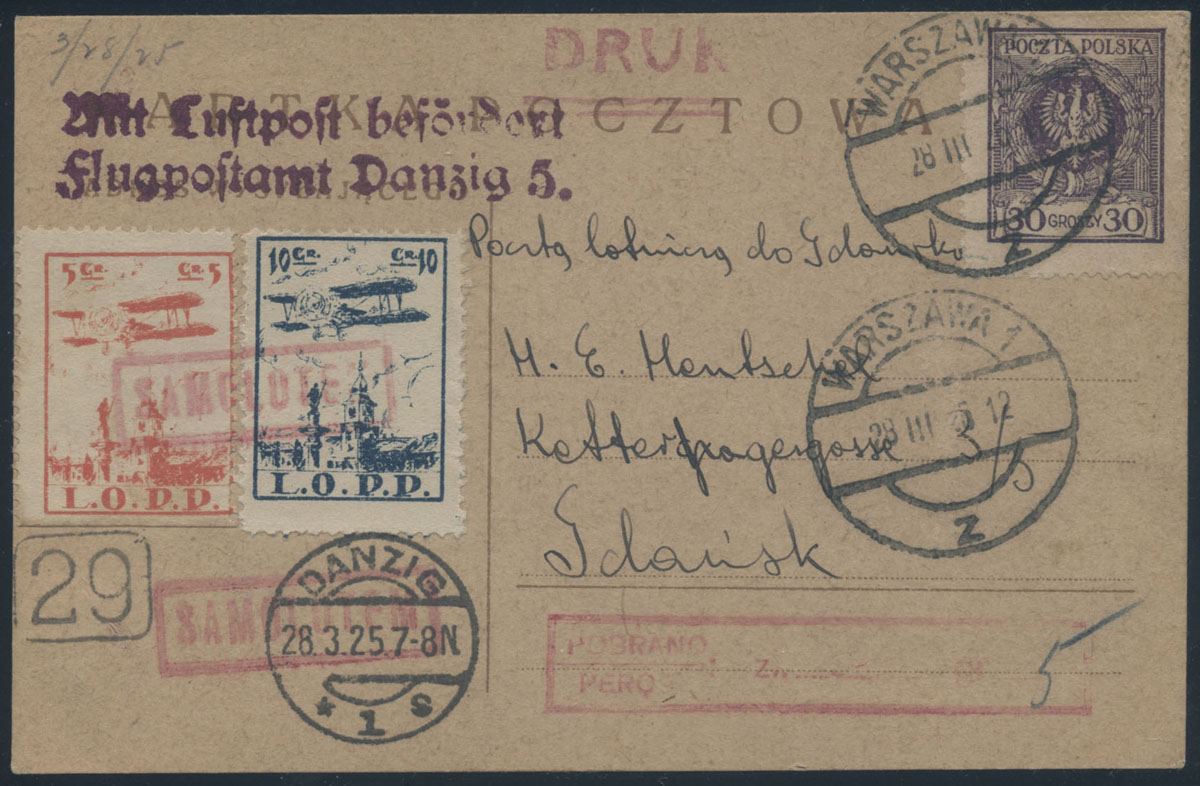 3/28/25
DRUK
KARTKA POCZTOWA
Mit Luftpost befördert
Flugpostamt Danzig 5.
WARSZAWA
28 III
Z
POCZTA POLSKA
30 GROSZY 30
Pocztą lotniczą do Gdańska
5 GR. GR. 5
L.O.P.P.
10 GR. GR. 10
L.O.P.P.
SAMOLOTEM
H. E. Hentschel
Gdańsk
WARSZAWA 1
28 III 25 12
Z
29
SAMOLOTEM
DANZIG
28.3.25.7-8N
* 1 s
POBRANO
5